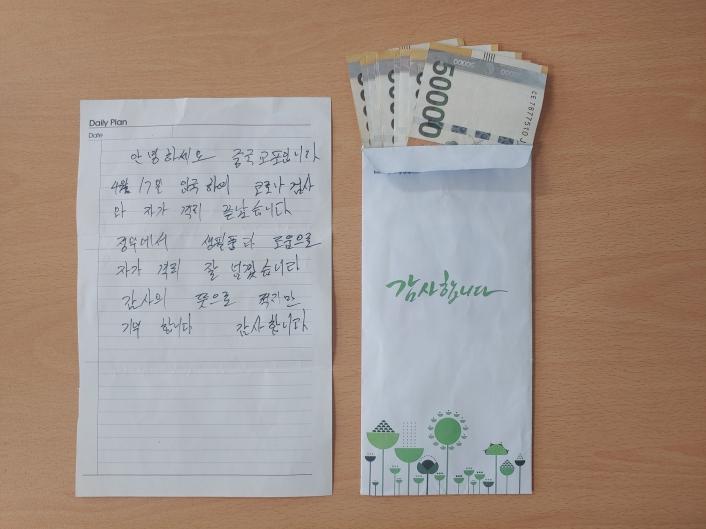 Daily Plan
Date
안녕하세요 중국 교포입니다
4월 17일 입국 하여 코로나 검사
와 자가 격리 끝났습니다
정부에서 생필품과 도움으로
자가 격리 잘 넘겼습니다
감사의 뜻으로 적지만
기부 합니다 감사합니다
50000
50000
CE7877510J
감사합니다